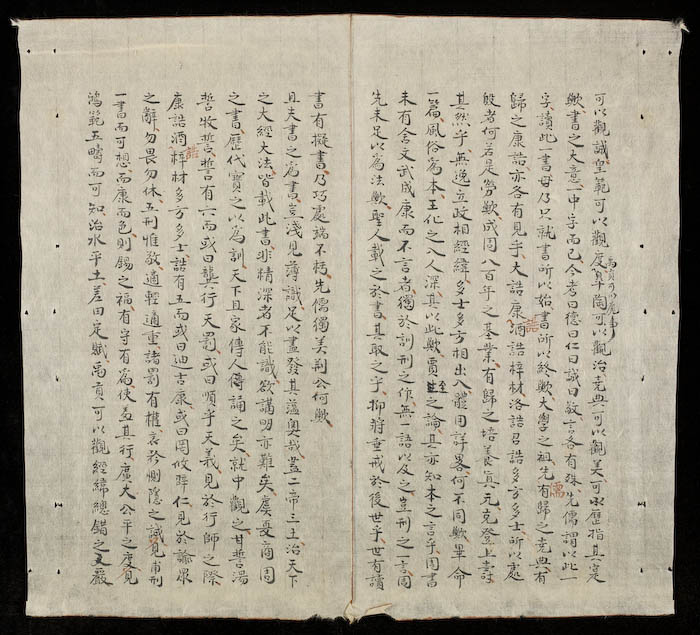 可以觀誠皇範可以觀度皐陶可以觀治堯典可以觀美可以歷指其定
禹貢可以觀事
歟書之大意一中字而已今考曰德曰仁曰誠曰敬言各有殊先儒謂以此一
字讀此一書毋乃只就書所以始書所以終歟大學之祖先儒有歸之堯典有
歸之康誥亦各有見乎大誥康誥酒誥梓材洛誥召誥多方多士所以處
殷者何若是勞歟成周八百年之基業有歸之培養真元克登上壽
其然乎無逸立政相經緯多士多方相出入體用詳畧何不同歟畢命
一篇風俗爲本王化之入人深其以此歟賈至之論其亦知本之言乎周書
未有舍文武成康而不言者獨於訓刑之作無一語以及之豈刑之一言周
先未足以爲法歟聖人載之於書其取之乎抑將重戒於後世乎世有讀
書有擬書乃巧處端不朽先儒獨美荆公何歟
且夫書之爲書豈淺見薄識足以盡發其蘊奥哉蓋二帝三王治天下
之大經大法皆載此書非精深者不能識欲講明亦難矣虞夏商周
之書歷代寶之以爲訓天下且家傳人傳誦之矣就中觀之甘誓湯
誓牧誓誓有六而或曰龔行天罰或曰順乎天義見於行師之際
康誥酒誥梓材多方多士誥有五而或曰迪吉康或曰罔攸仁見於諭衆
之辭勿畏勿休五刑惟敬適輕適重諸罰有權哀矜惻隱之誠見甫刑
一書而可想而康而色則錫之福有守有爲使羞其行廣大公平之度見
鴻範五疇而可知治水平土差田定賦禹貢可以觀經緯總錯之文嚴